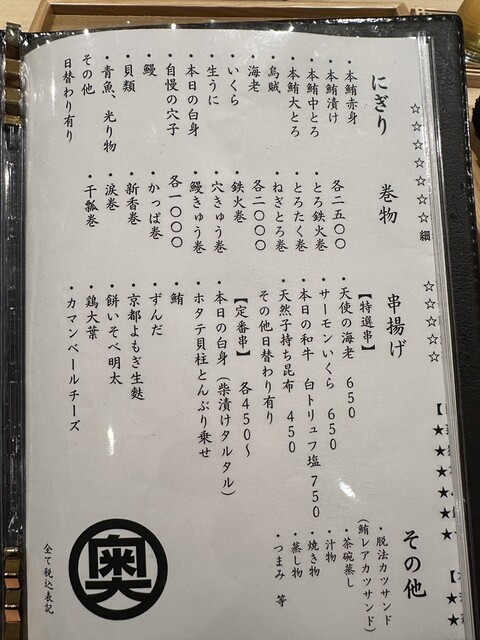 にぎり
・本鮪赤身
・本鮪漬け
・本鮪中とろ
・本鮪大とろ
・烏賊
・海老
・いくら
・生うに
・本日の白身
・自慢の穴子
・鰻
・貝類
・青魚、光り物
その他
日替わり有り
巻物
各二五〇〇
・とろ鉄火巻
・とろたく巻
・ねぎとろ巻
各二〇〇〇
・鉄火巻
・穴きゅう巻
・鰻きゅう巻
各一〇〇〇
・かっぱ巻
・新香巻
・涙巻
・干瓢巻
串揚げ
【特選串】
・天使の海老 650
・サーモンいくら 650
・本日の和牛 白トリュフ塩 750
・天然子持ち昆布 450
その他日替わり有り
【定番串】 各450〜
・本日の白身(柴漬けタルタル)
・ホタテ貝柱とんぶり乗せ
・鮪
・ずんだ
・京都よもぎ生麩
・餅いそべ明太
・鶏大葉
・カマンベールチーズ
その他
・脱法カツサンド
(鮪レアカツサンド)
・茶碗蒸し
・汁物
・焼き物
・蒸し物
・つまみ 等
奥
全て税込表記